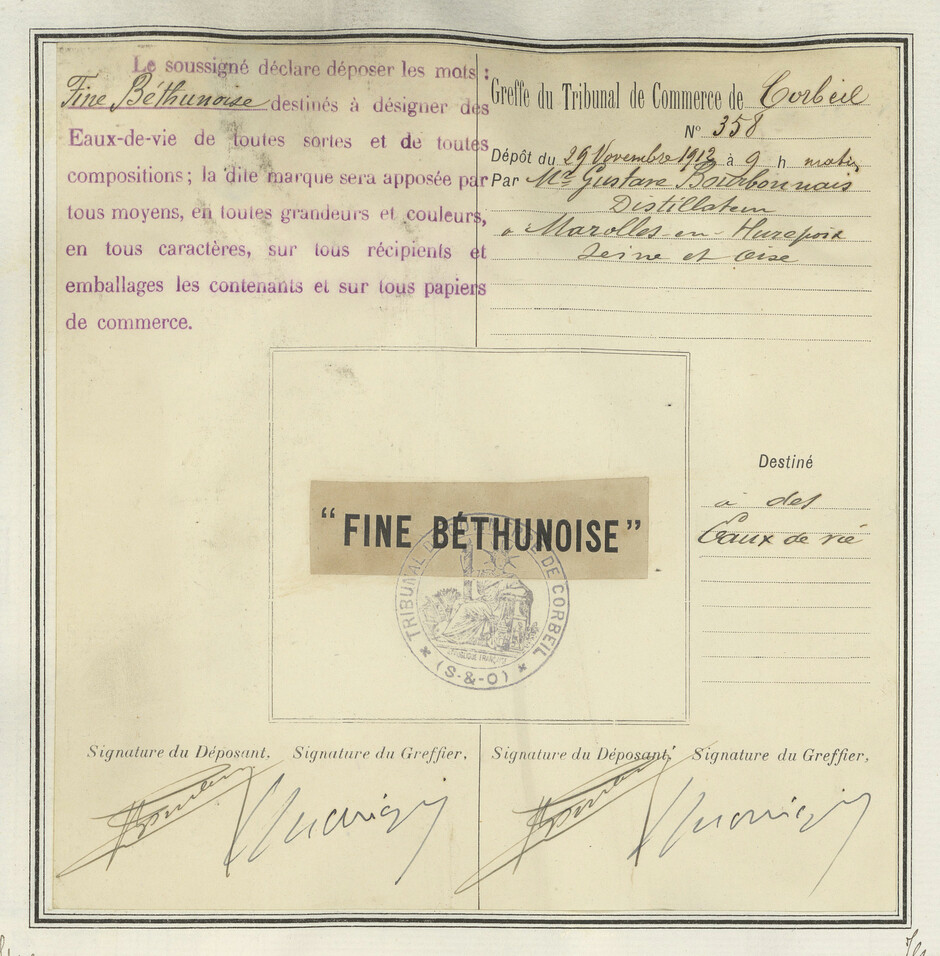 Le soussigné déclare déposer les mots :
Fine Béthunoise destinés à désigner des
Eaux-de-vie de toutes sortes et de toutes
compositions; la dite marque sera apposée par
tous moyens, en toutes grandeurs et couleurs,
en tous caractères, sur tous récipients et
emballages les contenants et sur tous papiers
de commerce.
Greffe du Tribunal de Commerce de Corbeil
N° 358
Dépôt du 29 Novembre 1912 à 9 h matin
Par Mr Gustave Bourbonnais
Distillateur
à Marolles-en-Hurepoix
Seine et Oise
"FINE BÉTHUNOISE"
TRIBUNAL DE COMMERCE DE CORBEIL
(S-&-O)
Destiné
à des
Eaux de vie
Signature du Déposant. Signature du Greffier,
Signature du Déposant. Signature du Greffier,